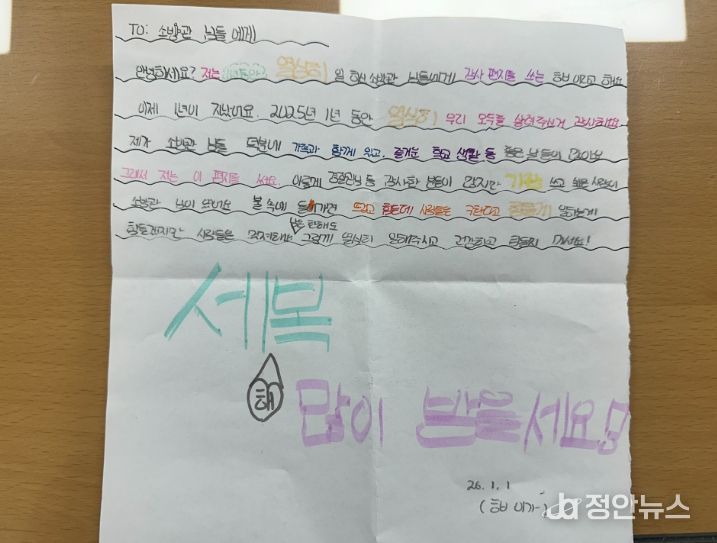 TO: 소방관 님들 에게
안녕하세요? 저는 열심히 일 하신 소방관 님들에게 감사 편지를 쓰는 라고 해요
이제 1년이 지났어요. 2025년 1년 동안 열심히 우리 모두를 살려주셔서 감사해요
제가 소방관 님들 덕분에 가족과 함께 있고, 즐거운 학교 생활 등 좋은 날들이 많아요
그래서 저는 이 편지를 써요. 이렇게 경찰관님 등 감사한 분들이 많지만 가장 쓰고 싶은 사람이
소방관 님이 뜨거운 불 속에 들어가면 뜨겁고 힘든데 사람들을 구한다고 힘들게 일하는게
힘들겠지만 사람들은 걱정해서 그렇게 열심히 일해주시고 건강하고 마세요!
세복
해
많이 받으세요!
26. 1. 1
정안뉴스